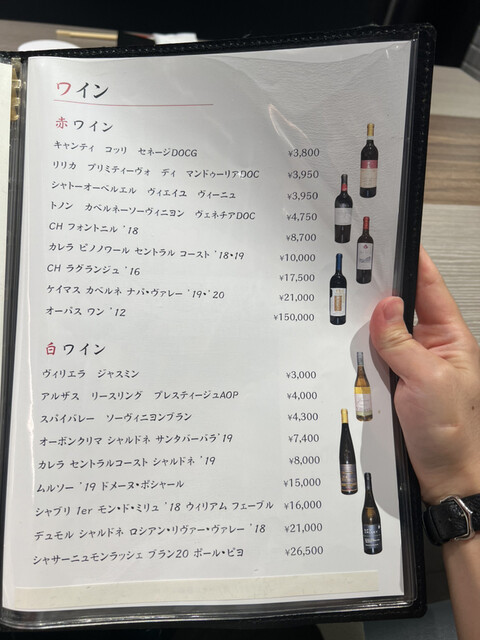 ワイン
赤ワイン
キャンティ コッリ セネージDOCG ¥3,800
リリカ プリミティーヴォ ディ マンドゥーリアDOC ¥3,950
シャトーオーベルエル ヴィエイユ ヴィーニュ ¥3,950
トノン カベルネーソーヴィニヨン ヴェネチアDOC ¥4,750
CH フォントニル '18 ¥8,700
カレラ ピノノワール セントラル コースト '18・19 ¥10,000
CH ラグランジュ '16 ¥17,500
ケイマス カベルネ ナパ・ヴァレー '19・'20 ¥21,000
オーパス ワン '12 ¥150,000
白ワイン
ヴィリエラ ジャスミン ¥3,000
アルザス リースリング プレスティージュAOP ¥4,000
スパイバレー ソーヴィニヨンブラン ¥4,300
オーボンクリマ シャルドネ サンタバーバラ'19 ¥7,400
カレラ セントラルコースト シャルドネ '19 ¥8,000
ムルソー '19 ドメーヌ・ボシャール ¥15,000
シャブリ 1er モン・ド・ミリュ '18 ウィリアム フェーブル ¥16,000
デュモル シャルドネ ロシアン・リヴァー・ヴァレー '18 ¥21,000
シャサーニュモンラッシェ ブラン20 ポール・ピヨ ¥26,500